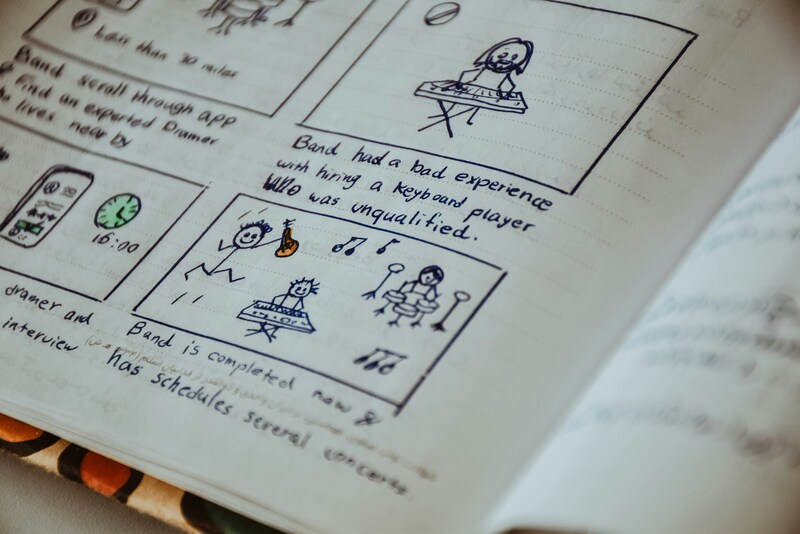 Less than 30 miles
Band scroll through app
Find an experted Dramer
lives near by
Band had a bad experience
with hiring a keyboard player
who was unqualified.
16:00
dramer and
interview
Band is completed now &
has schedules several concerts.